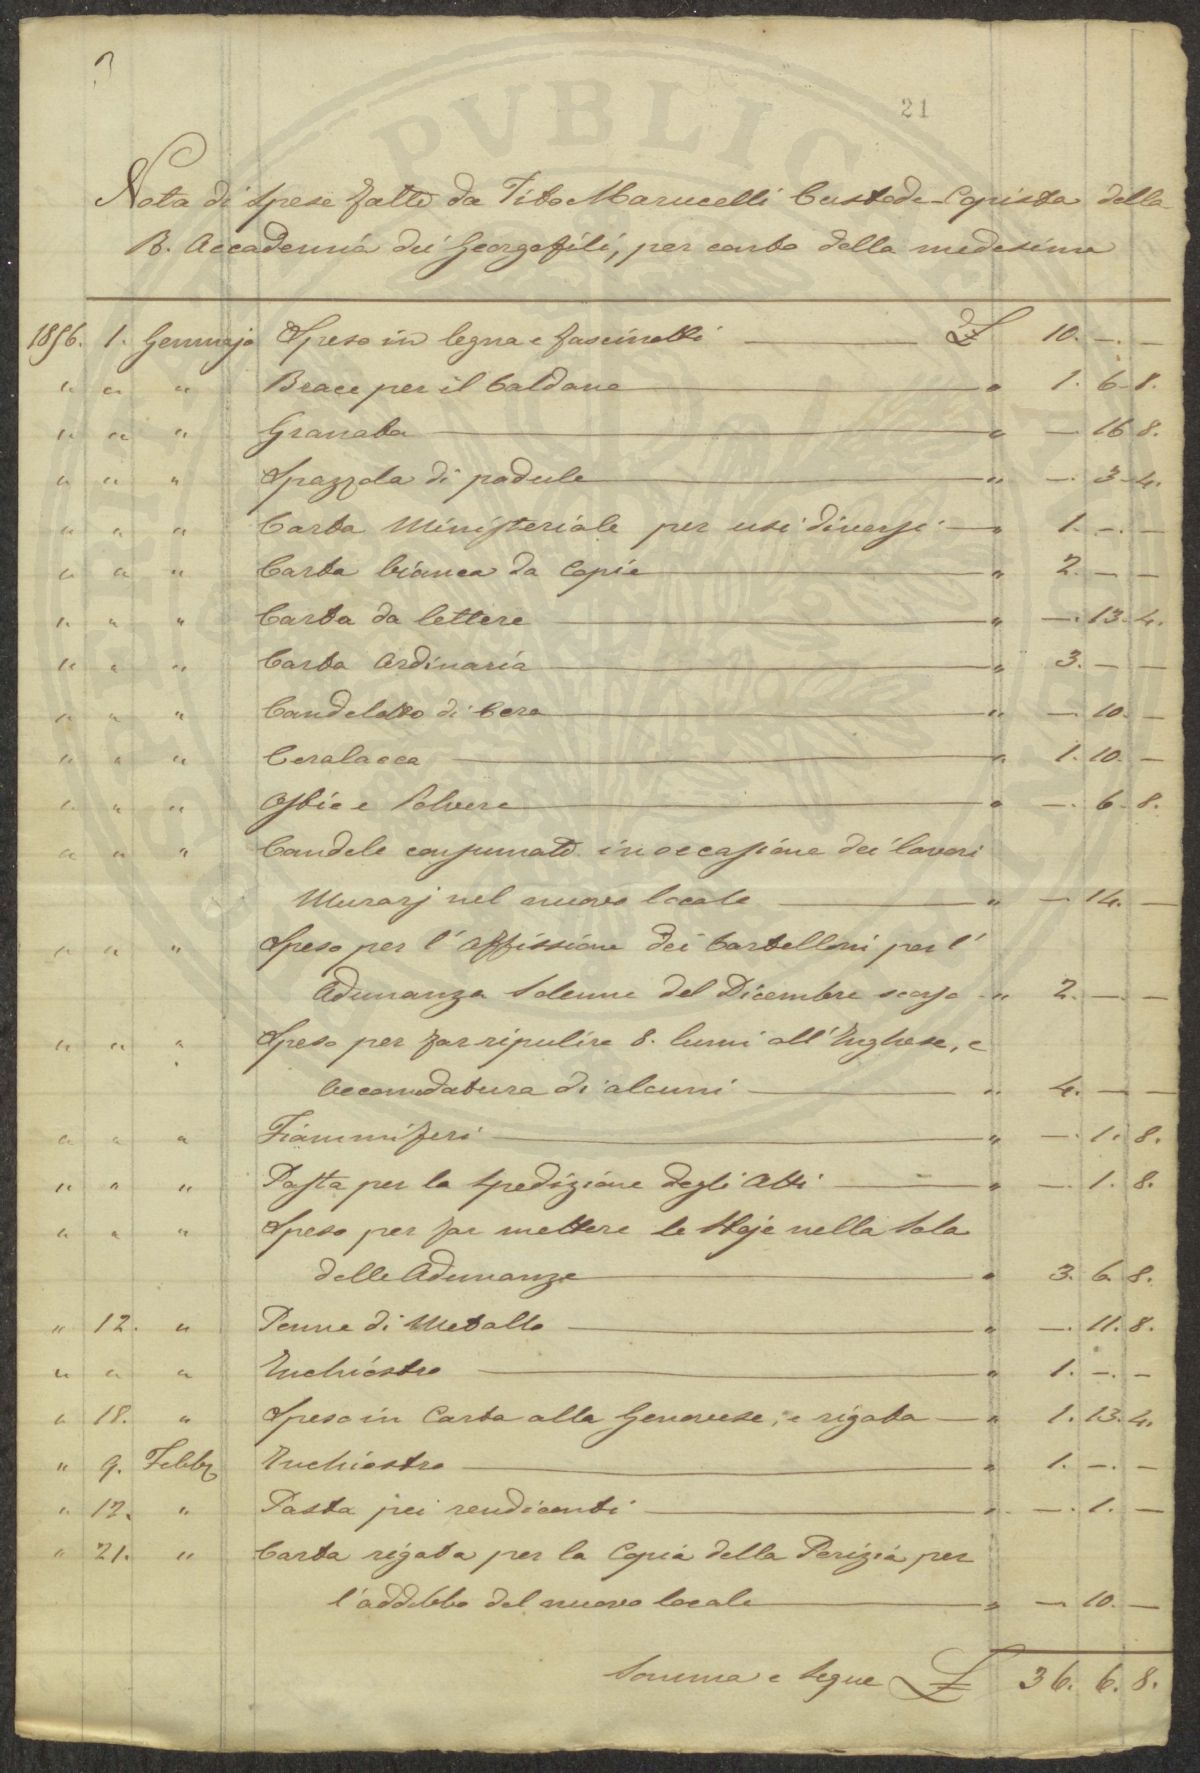 21
Nota di Spese fatte da Tito Marucelli Custode-Copista della
R. Accademia dei Georgofili, per conto della medesima
1856. 1. Gennajo Speso in legna e fascinotti £ 10. — —
" " " Brace per il Caldano " 1. 6. 8.
" " " Granata " — 16. 8.
" " " Spazzola di padule " — 3. 4.
" " " Carta Ministeriale per usi diversi " 1. — —
" " " Carta bianca da Copie " 2. — —
" " " Carta da lettere " — 13. 4.
" " " Carta Ordinaria " 3. — —
" " " Candelotto di Cera " — 10. —
" " " Ceralacca " 1. 10. —
" " " Ostie e Polvere " — 6. 8.
" " " Candele consumate in occasione dei lavori
Murarj nel nuovo locale " — 14. —
" " " Speso per l'affissione dei Cartelloni per l'
Adunanza Solenne del Dicembre scorso " 2. — —
" " " Speso per far ripulire 8. lumi all'Inghese, e
accomodatura di alcuni " 4. — —
" " " Fiammiferi " — 1. 8.
" " " Pasta per la Spedizione degli Atti " — 1. 8.
" " " Speso per far mettere le Stoje nella Sala
delle Adunanze " 3. 6. 8.
" 12. " Penne di Metallo " — 11. 8.
" " " Inchiostro " 1. — —
" 18. " Speso in Carta alla Genovese, e rigata " 1. 13. 4.
" 9. Febb. Inchiostro " 1. — —
" 12. " Pasta pei rendiconti " — 1. —
" 21. " Carta rigata per la Copia della Perizia per
l'addobbo del nuovo locale " — 10. —
Somma e Segue £ 36. 6. 8.